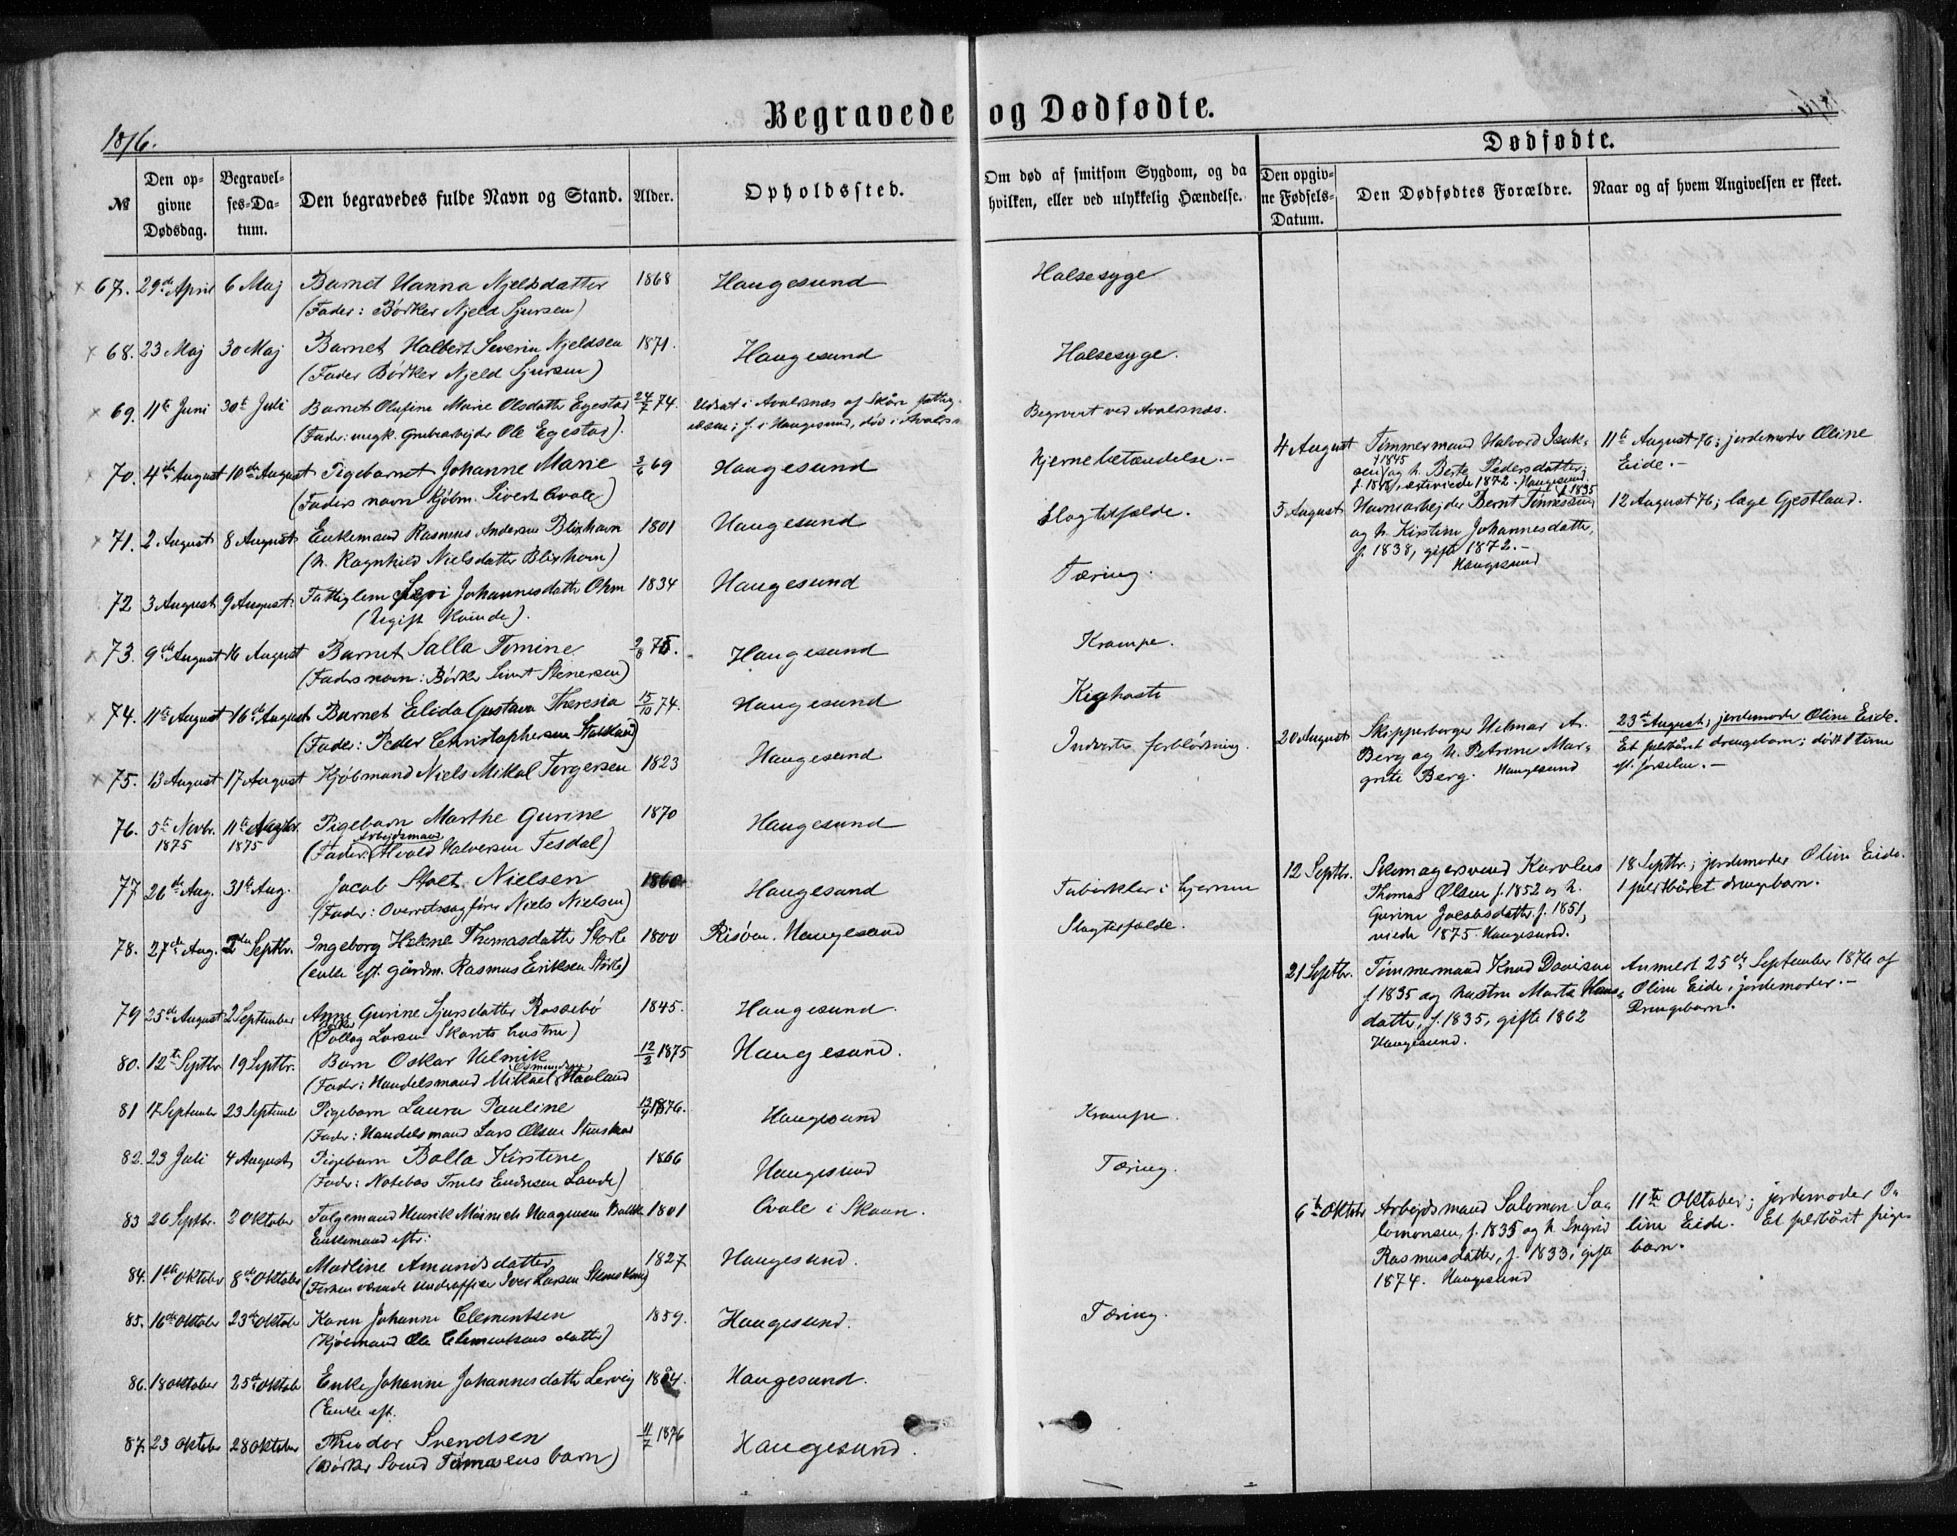 Begravede og Dødfødte.
1876.
1876.
Dødfødte.
№
Den opgivne Dødsdag.
Begravelses-Datum.
Den begravedes fulde Navn og Stand.
Alder.
Opholdssted.
Om død af smitsom Sygdom, og da hvilken, eller ved ulykkelig Hændelse.
Den opgivne Fødsels-Datum.
Den Dødfødtes Forældre.
Naar og af hvem Angivelsen er skeet.
67. 29de April 6 Maj Barnet Hanna Njeldsdatter 1868 Haugesund Halsesyge
(Fader: Bødker Njeld Sjursen)
68. 23 Maj 30 Maj Barnet Halbert Severin Njeldsen 1871. Haugesund Halsesyge.
(Fader Bødker Njeld Sjursen)
69. 11te Juni 30te Juli Barnet Olufine Marie Olsdatter Egestad 24/7 74. Udsat i Avalsnæs af Skåre fattig-
væsen; f. i Haugesund, død i Avalsn Begravet ved Avalsnæs.
(Fader: ungk. Grubearbejder Ole Egestad).
70. 4de August 10de August Pigebarnet Johanne Marie 3/6 69 Haugesund Hjernebetændelse.-
(Faders navn Kjøbm. Sivert Qvale)
71. 2 August 8 August Enkemand Rasmus Andersen Blixhavn 1801 Haugesund Slagtilfælde.
(h. Ragnhild Nielsdatter Blixhavn)
72 3 August 9 August: Fattiglem Johannesdatter Ohm 1834 Haugesund Tæring.
(Ugift Kvinde).
73. 9de August 16 August Barnet Salla Tomine 2/8 75. Haugesund Krampe.
(Faders navn: Bødker Sivert Stenersen)
74. 11te August 16de August Barnet Elida Gustava Theresia 15/10 74. Haugesund Kighoste
(Fader: Peder Christophersen)
75. 13 August 17 August Kjøbmand Niels Mikal Torgersen 1823 Haugesund Indvortes forblødning.
76. 5te Novbr. 1875 11te 1875 Pigebarn Marthe Gurine 1870 Haugesund
(Fader: Arbejdsmand Halversen Tesdal)
77 26de Aug. 31te Aug. Jacob Stolt Nielsen 1860 Haugesund Tuberkler i hjernen
(Fader: Overretssagfører Niels Nielsen)
78. 27de Aug. 2den Septbr. Ingeborg Helene Thomasdatter Støle 1800 Risøen. Haugesund Slagtilfælde.
(enke eft. gårdm. Rasmus Eriksen Støle)
79 25de August 2 September Anne Gurine Sjursdatter Rossebø 1845. Haugesund.
(Larsen Skarets hustru)
80. 12te Septbr. 19 Septbr. Barn Oskar Velmik 12/3 1875 Haugesund.
(Fader: Handelsmand Mikael Osmundsen Havland
81 17 September 23 September Pigebarn Laura Pauline 1876. Haugesund Krampe.
(Fader: Handelsmand Lars Olsen
82. 23 Juli 4 August Pigebarn Bolla Kirstine 1866 Haugesund Tæring.
(Fader: Notebas Truls Endresen Lande)
83 26 Septbr. 2 Oktober Følgemand Henrik Meinich Haagensen 1801 Qvale i Skaan.
Enkemand efter:
84. 1ste Oktober 8de Oktober Marline Amundsdatter 1827 Haugesund.
(Forhenværende Underofficer Iver Larsen)
85. 16de Oktober 23de Oktober Karen Johanne Clementsen 1859. Haugesund. Tæring.
(Kjøbmand Ole Clementsens datter)
86. 18 Oktober 25de Oktob Enke Johanne Johannesdatter Lervig Haugesund.
(Enke eft.
87. 23 Oktober 28 Oktober Theodor Svendsen 11/7 1876 Haugesund.
(Bødker Svend Tømasens barn)
4 August Tømmermand Halvard Isak-
sen f 1845 og h. Berte Pedersdatter,
f. 1848, ægteviede 1872. Haugesund.
11te August 76; jordemoder Oline
Eide.-
5 August Havnearbejder Bernt f. 1835
og h. Kirstine Johannesdatter,
f. 1838, gift 1872.-
Haugesund
12 August 76; læge Gjestland.
20 August Skipperborger Helmar A.
Berg og h. Petrine Mar-
grete Berg. Haugesund
23de August; jordemoder Oline Eide.
Et fuldbåret drengebarn; dødt 1 time
ef. førselen.-
12 Septbr. Skomagersvend Karolus
Thomas Olsen f. 1852 og h.
Gurine Jacobsdatter f. 1851,
viede 1875. Haugesund.
18 Septbr.; jordemoder Oline Eide.
1 fuldbåret drengebarn.
21 Septbr. Tømmermand Knud Davidsen
f 1835 og hustru Marta Hans-
datter, f. 1835, gifte 1862
Haugesund.
Anmeldt 25de September 1876 af
Oline Eide, jordemoder.-
Drengebarn.
6te Oktober Arbejdsmand Salomon Sa-
lomonsen, f. 1835 og h. Ingrid
Rasmusdatter, f. 1833, gift
1874. Haugesund
11te Oktober; jordemoder O-
line Eide. Et fuldbåret pige-
barn.